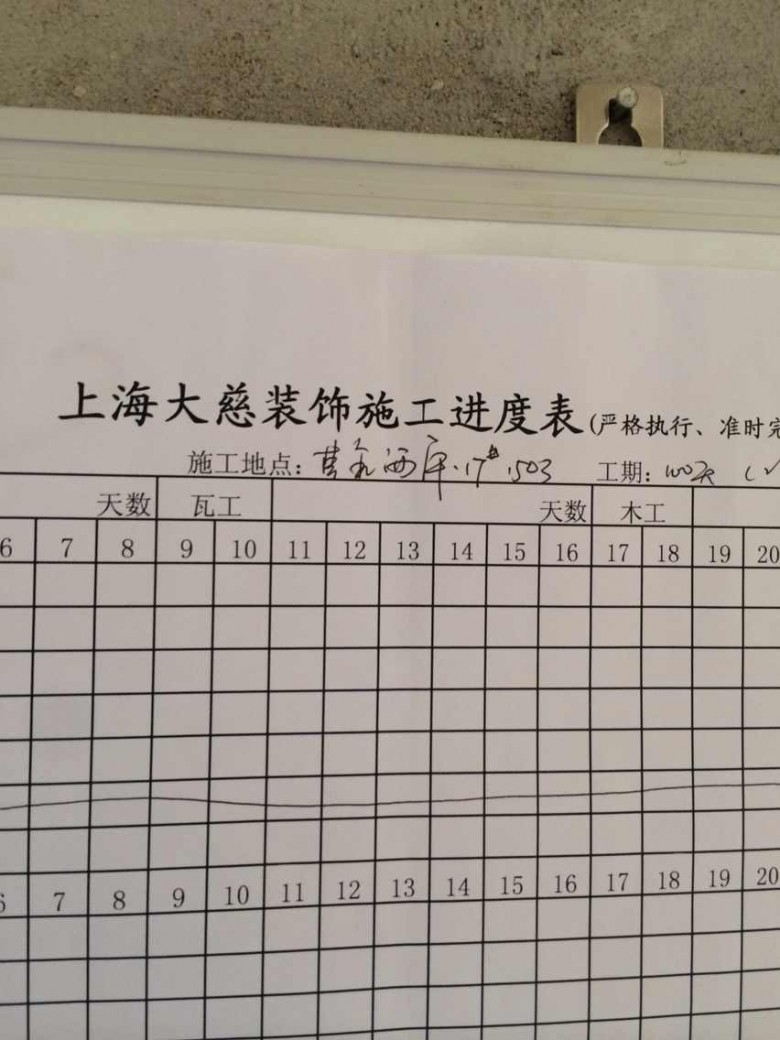 上海大慈装饰施工进度表(严格执行、准时完
施工地点: 17# 503 工期: 100天
天数 瓦工 天数 木工
6 7 8 9 10 11 12 13 14 15 16 17 18 19 20
6 7 8 9 10 11 12 13 14 15 16 17 18 19 20